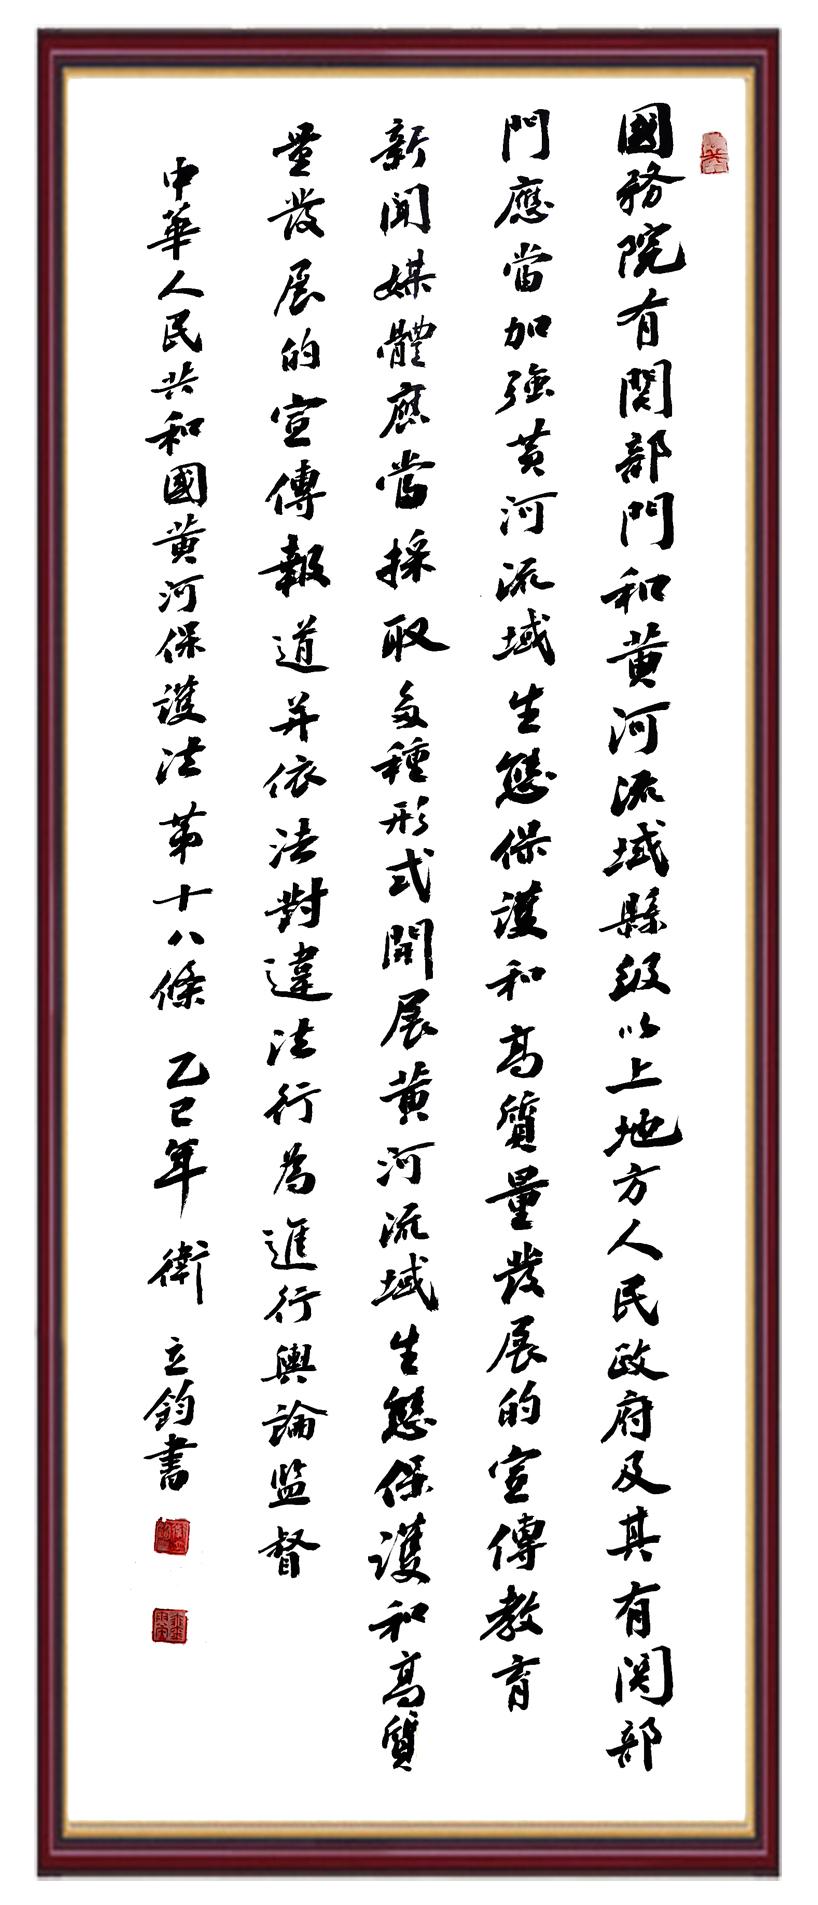 國務院有関部門和黃河流域縣級以上地方人民政府及其有関部
門應當加強黃河流域生態保護和高質量發展的宣傳教育
新聞媒體應當採取多種形式開展黃河流域生態保護和高質
量發展的宣傳報道并依法對違法行為進行輿論監督
中華人民共和國黃河保護法第十八條 乙巳年 衛立鈞書